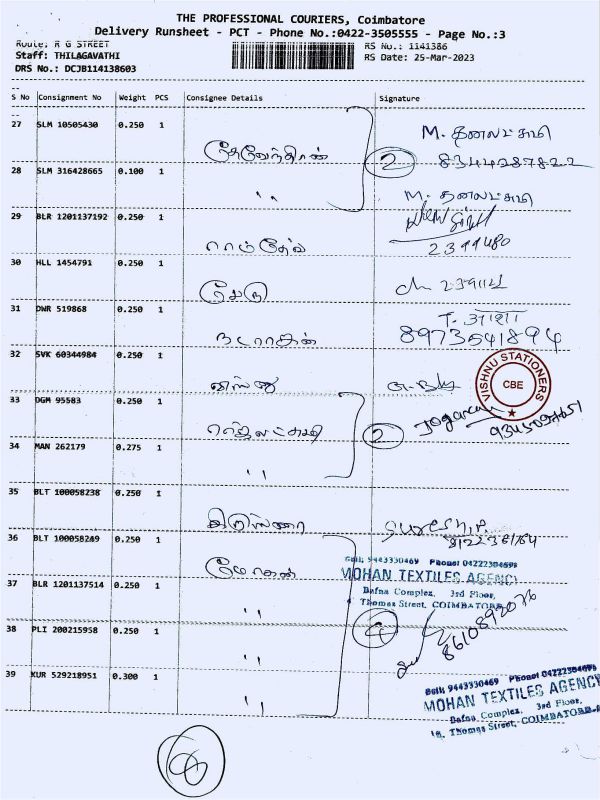 THE PROFESSIONAL COURIERS, Coimbatore
Delivery Runsheet - PCT - Phone No.:0422-3505555 - Page No.:3
Route: R G STREET
RS No.: 1141386
Staff: THILAGAVATHI
RS Date: 25-Mar-2023
DRS No.: DCJB114138603
S No Consignment No Weight PCS Consignee Details Signature
27 SLM 10505430 0.250 1
M. தனலட்சுமி
தேவேந்திரன் 2 8344287822
28 SLM 316428665 0.100 1
,, M. தனலட்சுமி
29 BLR 1201137192 0.250 1
ராம்தேவ் 2399480
30 HLL 1454791 0.250 1
சேது
31 DWR 519868 0.250 1
T. आशा
நடராசன் 8973541894
32 SVK 60344984 0.250 1
விஷ்ணு
VISHNU STATIONERS
CBE
33 DGM 95583 0.250 1
ராஜலட்சுமி 2
34 MAN 262179 0.275 1
,,
35 BLT 100058238 0.250 1
கிருஷ்ணா Suresh.P.
36 BLT 100058249 0.250 1
மோகன்
Cell: 9443330469 Phone: 04222304698
MOHAN TEXTILES AGENCY
Bafna Complex, 3rd Floor,
Thomas Street, COIMBATORE
37 BLR 1201137514 0.250 1
,, 4 8610892076
38 PLI 200215958 0.250 1
,,
39 KUR 529218951 0.300 1
,,
Cell: 9443330469 Phone: 04222304698
MOHAN TEXTILES AGENCY
Bafna Complex, 3rd Floor,
Thomas Street, COIMBATORE